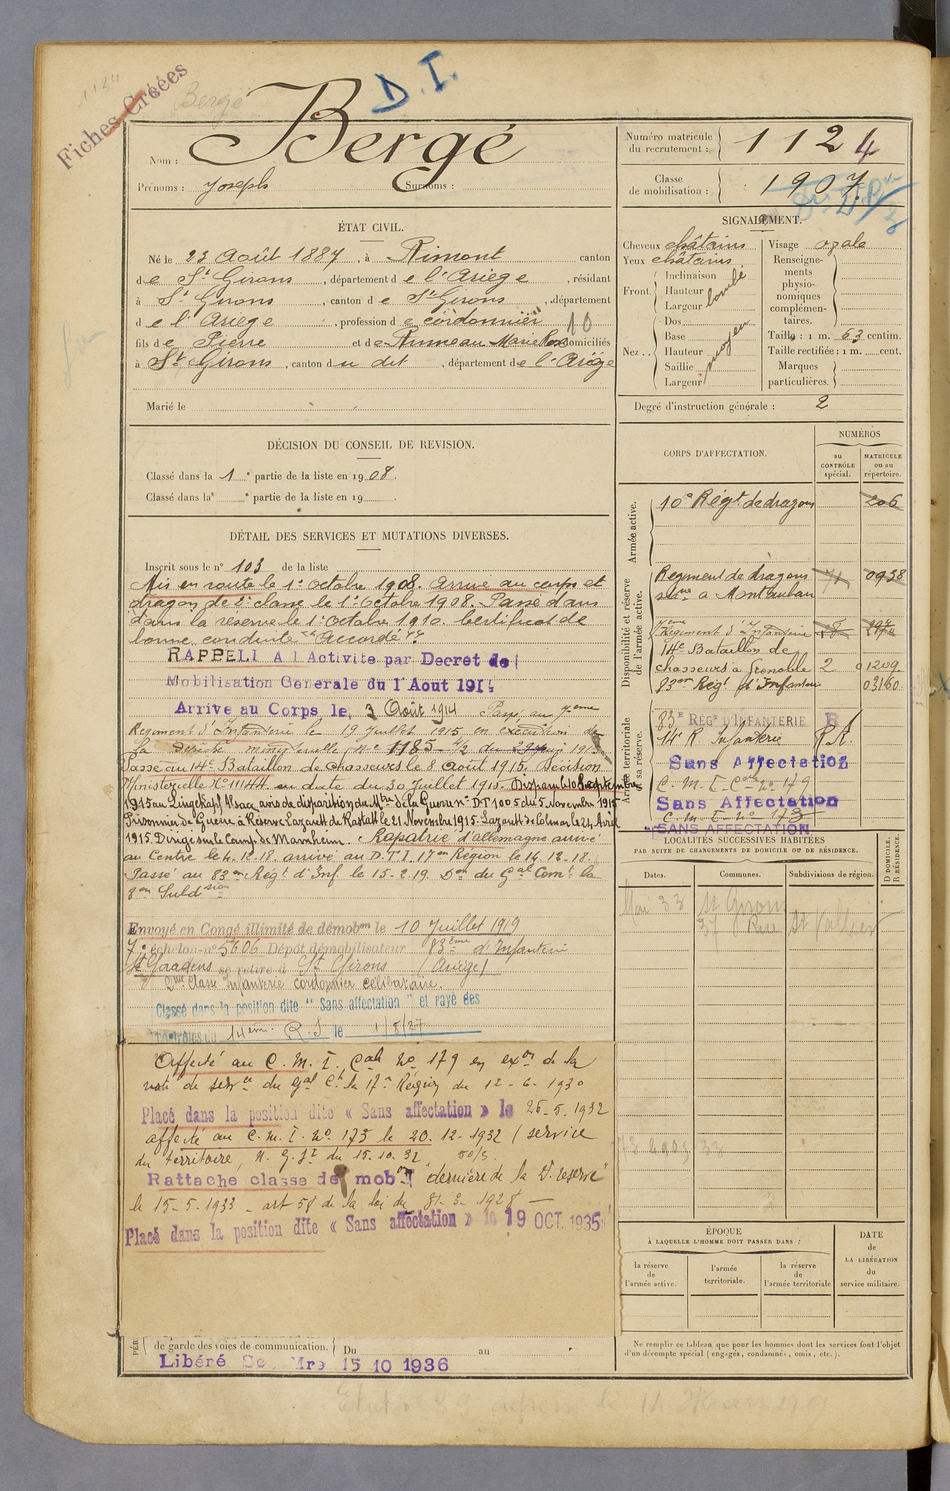 1124
Fiches Créées
Bergé
D.I.
Nom : Bergé
Prénoms : Joseph Surnoms :
Numéro matricule du recrutement : 1124
Classe de mobilisation : 1907
ÉTAT CIVIL.
Né le 23 Août 1887, à Rimont canton
de St Girons, département de l'Ariège, résidant
à St Girons, canton de St Girons, département
de l'Ariège, profession de cordonnier 10
fils de Pierre et de Anneau Marie Rose domiciliés
à St Girons, canton du dit, département de l'Ariège
Marié le
SIGNALEMENT.
Cheveux châtains
Yeux châtains
Front. Inclinaison
Hauteur
Largeur
bombé
Nez.. Dos
Base
Hauteur
Saillie
Largeur
moyen
Visage ovale
Renseignements physionomiques complémentaires.
Taille : 1 m. 63 centim.
Taille rectifiée : 1 m. cent.
Marques particulières.
Degré d'instruction générale : 2
DÉCISION DU CONSEIL DE REVISION.
Classé dans la 1e partie de la liste en 1908.
Classé dans la e partie de la liste en 19
DÉTAIL DES SERVICES ET MUTATIONS DIVERSES.
Inscrit sous le n° 103 de la liste
Mis en route le 1er octobre 1908. Arrivé au corps et
dragon de 2e classe le 1er Octobre 1908. Passé dans
dans la réserve le 1er Octobre 1910. Certificat de
bonne conduite Accordé
RAPPELÉ A l'Activité par Decret de
Mobilisation Générale du 1 Aout 1914
Arrive au Corps le 3 Août 1914 Passé au 7eme
Regiment d'Infanterie le 19 Juillet 1915 en exécution de
la Dépêche ministérielle N° 1185
Passé au 14e Bataillon de Chasseurs le 8 Août 1915. Décision
Ministerielle N° 11144 en date du 30 Juillet 1915. Disparu le 10 Septembre
1915 au Lingekopf Alsace avis de disparition du Mtre de la Guerre n° DT 1005 du 5 Novembre 1915
Prisonnier de Guerre à Réserve Lazarett de Rastatt le 21 Novembre 1915. Lazarett de Colmar le 21 Avril
1915. Dirigé sur le Camp de Mannheim. Rapatrié d'allemagne arrivé
au Centre le 4.12.18 arrivé au D.T.I. 17en Région le 14.12.18.
Passé au 83en Régt d'Inf. le 15-2.19. Don du Gal Comt la
8en Subdsion
Envoyé en Congé illimité de démobon le 10 Juillet 1919
7e échelon n° 5606 Dépôt démobilisateur 83ème d'Infanterie
St Gaudens se retire à St Girons (Ariège)
2me Classe Infanterie cordonnier célibataire.
Classé dans la position dite "Sans affectation" et rayé des
contrôles du 14ème R.I le 1/8/27
Affecté au C.M.I. Cal N° 179 en exon de la
note de serce du Gal Ct la 17e Région du 12-6-1930
Placé dans la position dite « Sans affectation » le 26-5-1932
affecté au C.M.I. N° 173 le 20.12.1932 (service
du territoire, du 15.10.32
Rattache classe de mobon dernière de la 2e reserve
le 15-5-1933 - art 58 de la loi du 31-3-1928 -
Placé dans la position dite « Sans affectation » le 19 OCT. 1935
de garde des voies de communication. Du au
Libéré 15 10 1936
CORPS D'AFFECTATION.
NUMÉROS
au CONTRÔLE spécial.
MATRICULE ou au répertoire.
Armée active.
10e Régt de dragons 206
Disponibilité et réserve
Regiment de dragons 0938
à Montauban
7ème Régiment d'Infanterie
14e Bataillon de
chasseurs à Grenoble 2 01209
83en Régt d'Infanterie 03160
Armée territoriale et sa réserve.
83e REGt D'INFANTERIE R
14e R. Infanterie R.A.
Sans Affectation
C.M.I. Cale N° 179
Sans Affectation
C.M.I. N° 173
SANS AFFECTATION
LOCALITÉS SUCCESSIVES HABITÉES
PAR SUITE DE CHANGEMENTS DE DOMICILE OU DE RÉSIDENCE.
Dates.
Communes.
Subdivisions de région.
D DOMICILE. R RÉSIDENCE.
Mai 33 St Girons
37 Rue St Vallier
ÉPOQUE
À LAQUELLE L'HOMME DOIT PASSER DANS :
la réserve de l'armée active.
l'armée territoriale.
la réserve de l'armée territoriale
DATE
de
LA LIBÉRATION
du
service militaire.
Ne remplir ce tableau que pour les hommes dont les services font l'objet
d'un décompte spécial (engagés, condamnés, omis, etc.).